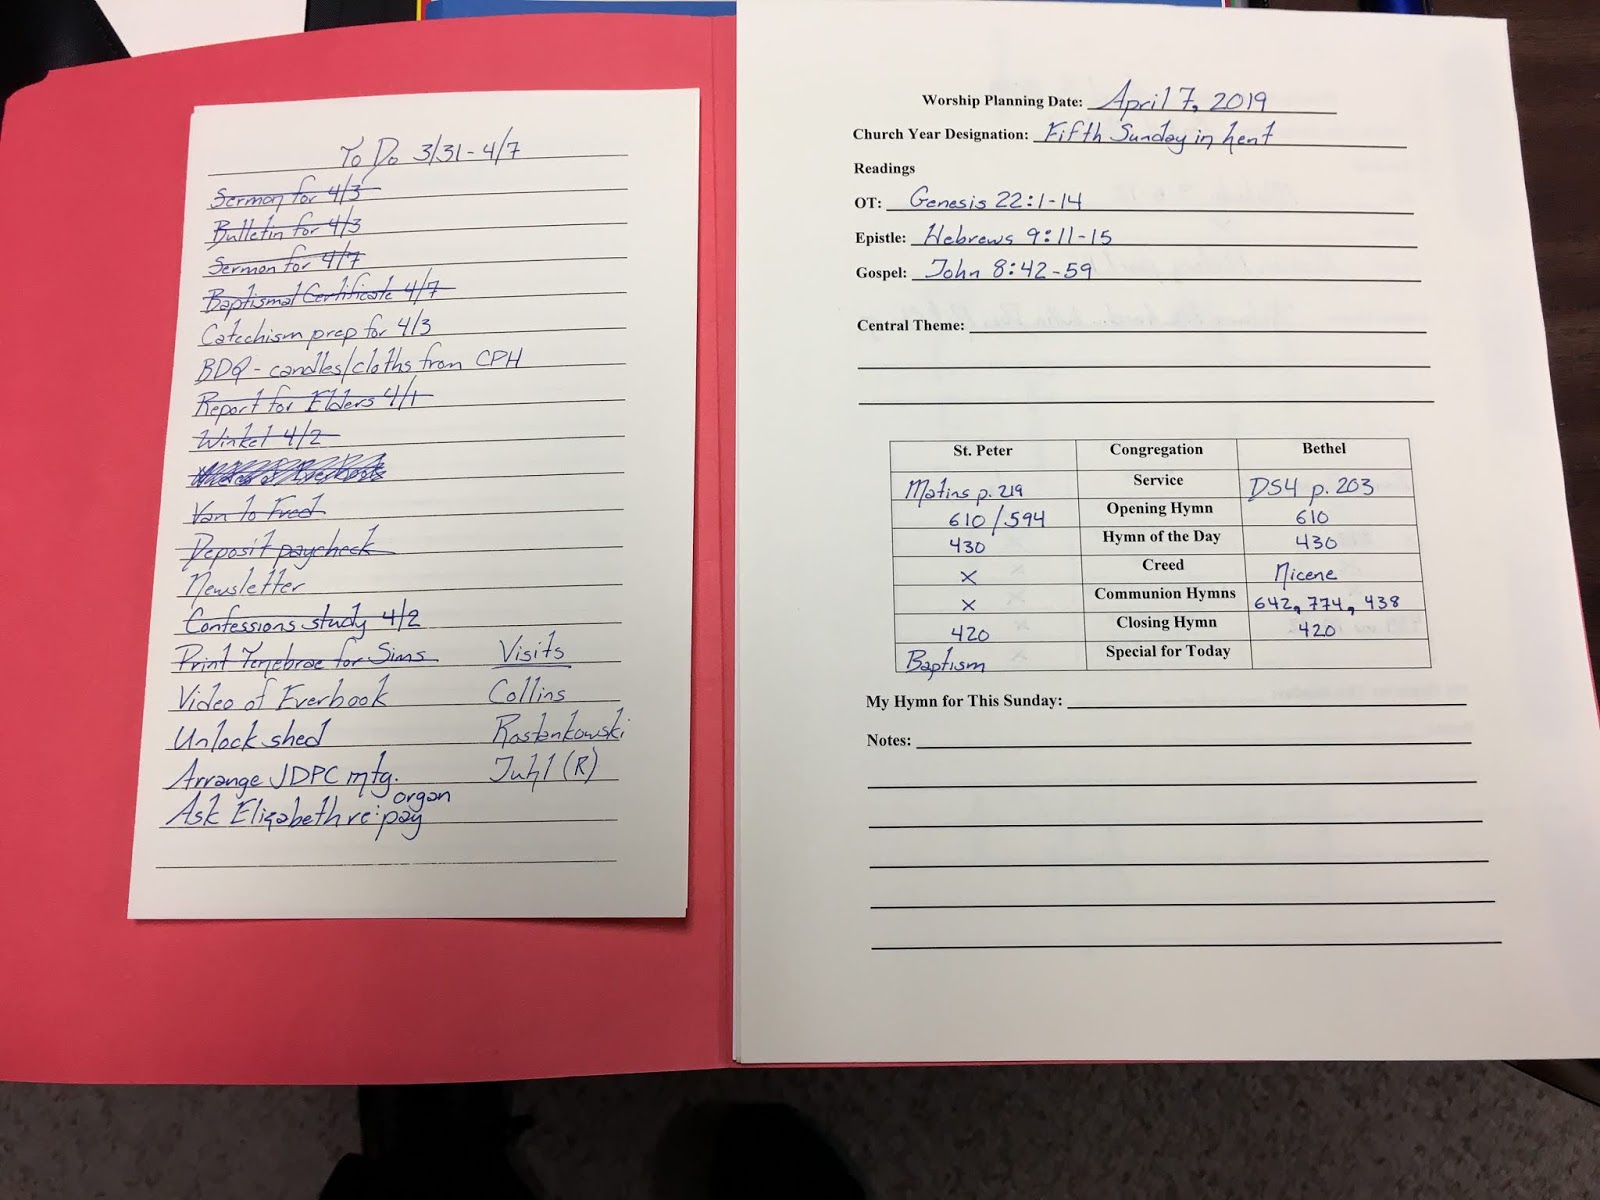 To Do 3/31-4/7
Sermon for 4/3
Bulletin for 4/3
Sermon for 4/7
Baptismal Certificate 4/7
Catechism prep for 4/3
BDQ - candles/cloths from CPH
Report for Elders 4/1
Winkel 4/2
Van to Fred
Deposit paycheck
Newsletter
Confessions study 4/2
Print Tenebrae for Sims
Video of Everbook
Unlock shed
Arrange JDPC mtg.
Ask Elizabeth re: organ pay
Visits
Collins
Rostenkowski
Juhl (R)
Worship Planning Date: April 7, 2019
Church Year Designation: Fifth Sunday in Lent
Readings
OT: Genesis 22:1-14
Epistle: Hebrews 9:11-15
Gospel: John 8:42-59
Central Theme:
St. Peter Congregation Bethel
Matins p. 219 Service DS4 p. 203
610/594 Opening Hymn 610
430 Hymn of the Day 430
x Creed Nicene
x Communion Hymns 642, 774, 438
420 Closing Hymn 420
Baptism Special for Today
My Hymn for This Sunday:
Notes: